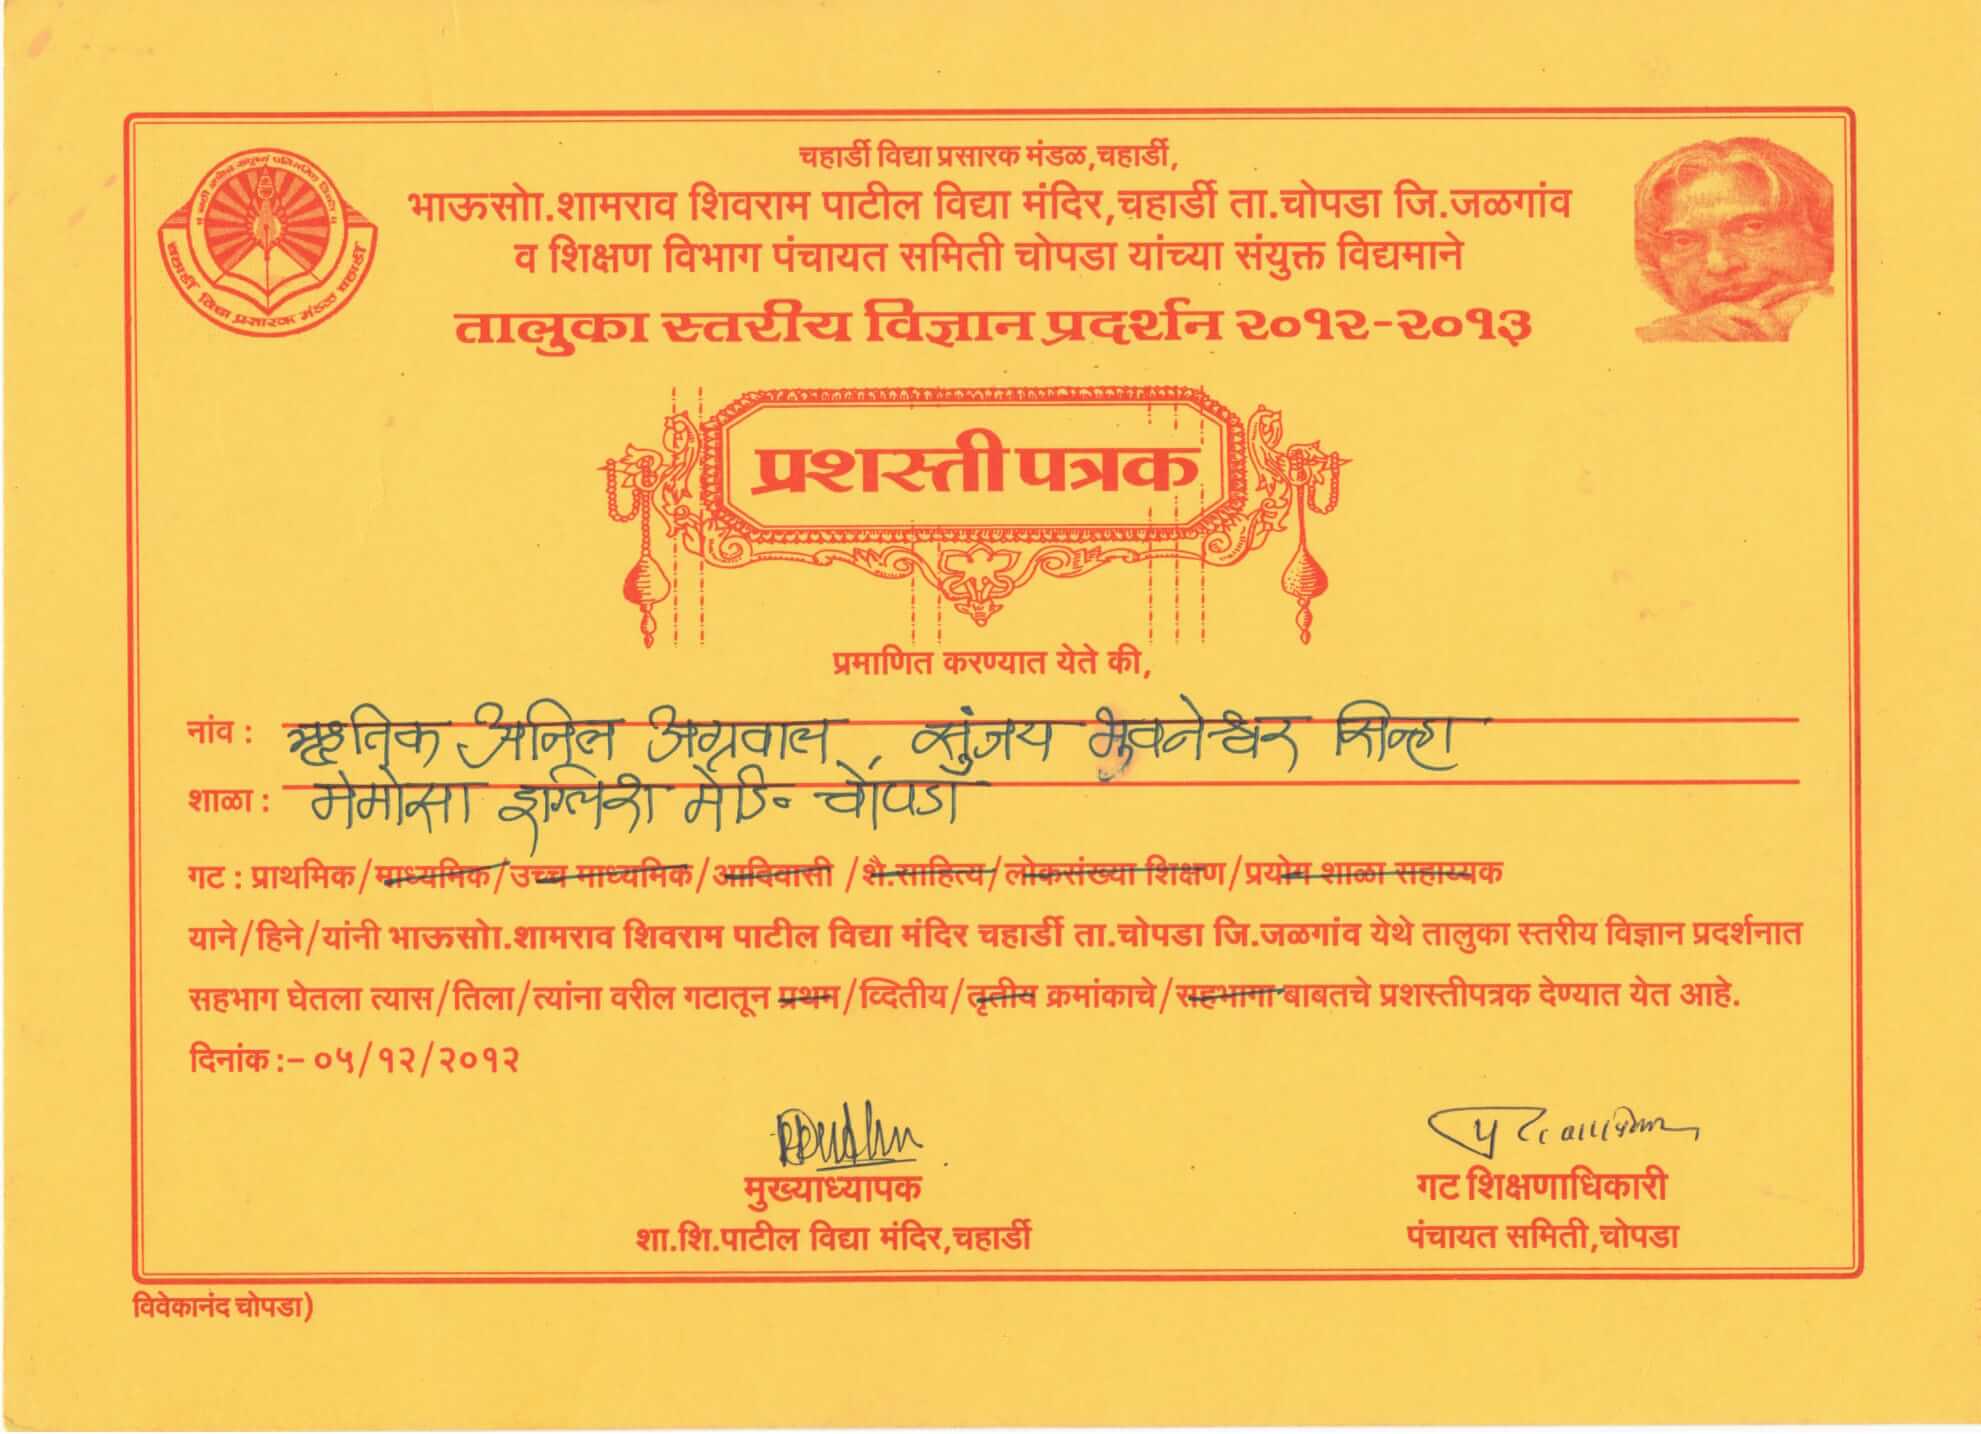 चहार्डी विद्या प्रसारक मंडळ,चहार्डी,
भाऊसो.शामराव शिवराम पाटील विद्या मंदिर,चहार्डी ता.चोपडा जि.जळगांव
व शिक्षण विभाग पंचायत समिती चोपडा यांच्या संयुक्त विद्यमाने
तालुका स्तरीय विज्ञान प्रदर्शन २०१२-२०१३
चहार्डी विद्या प्रसारक मंडळ चहार्डी
प्रशस्ती पत्रक
प्रमाणित करण्यात येते की,
नांव : ऋतिक अनिल अग्रवाल, सुंजय भुवनेश्वर सिन्हा
शाळा : मेमोसा इंग्लिश मेडि॰ चोंपडा
गट : प्राथमिक/माध्यमिक/उच्च माध्यमिक/आदिवासी /शै.साहित्य/लोकसंख्या शिक्षण/प्रयोग शाळा सहाय्यक
याने/हिने/यांनी भाऊसो.शामराव शिवराम पाटील विद्या मंदिर चहार्डी ता.चोपडा जि.जळगांव येथे तालुका स्तरीय विज्ञान प्रदर्शनात
सहभाग घेतला त्यास/तिला/त्यांना वरील गटातून प्रथम/व्दितीय/तृतीय क्रमांकाचे/सहभागा बाबतचे प्रशस्तीपत्रक देण्यात येत आहे.
दिनांक :– ०५/१२/२०१२
मुख्याध्यापक
शा.शि.पाटील विद्या मंदिर,चहार्डी
गट शिक्षणाधिकारी
पंचायत समिती,चोपडा
विवेकानंद चोपडा)